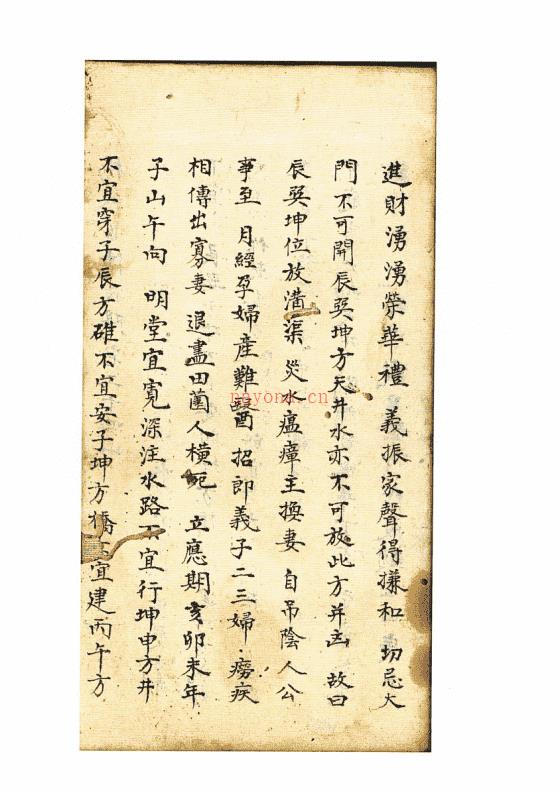 進財湧湧榮華禮 義振家聲得攥和 切忌大
門不可開辰巽坤方天井水亦不可放此方并凶 故曰
辰巽坤位放溝渠 災水瘟瘴主換妻 自吊陰人公
事至 月經孕婦產難醫 招郎義子二三婦 癆疾
相傳出寡妻 退盡田園人橫死 立應期亥卯未年
子山午向 明堂宜寬深注水路不宜行坤申方井
不宜穿子辰方碓不宜安子坤方橋不宜建丙午方
nayona.cn